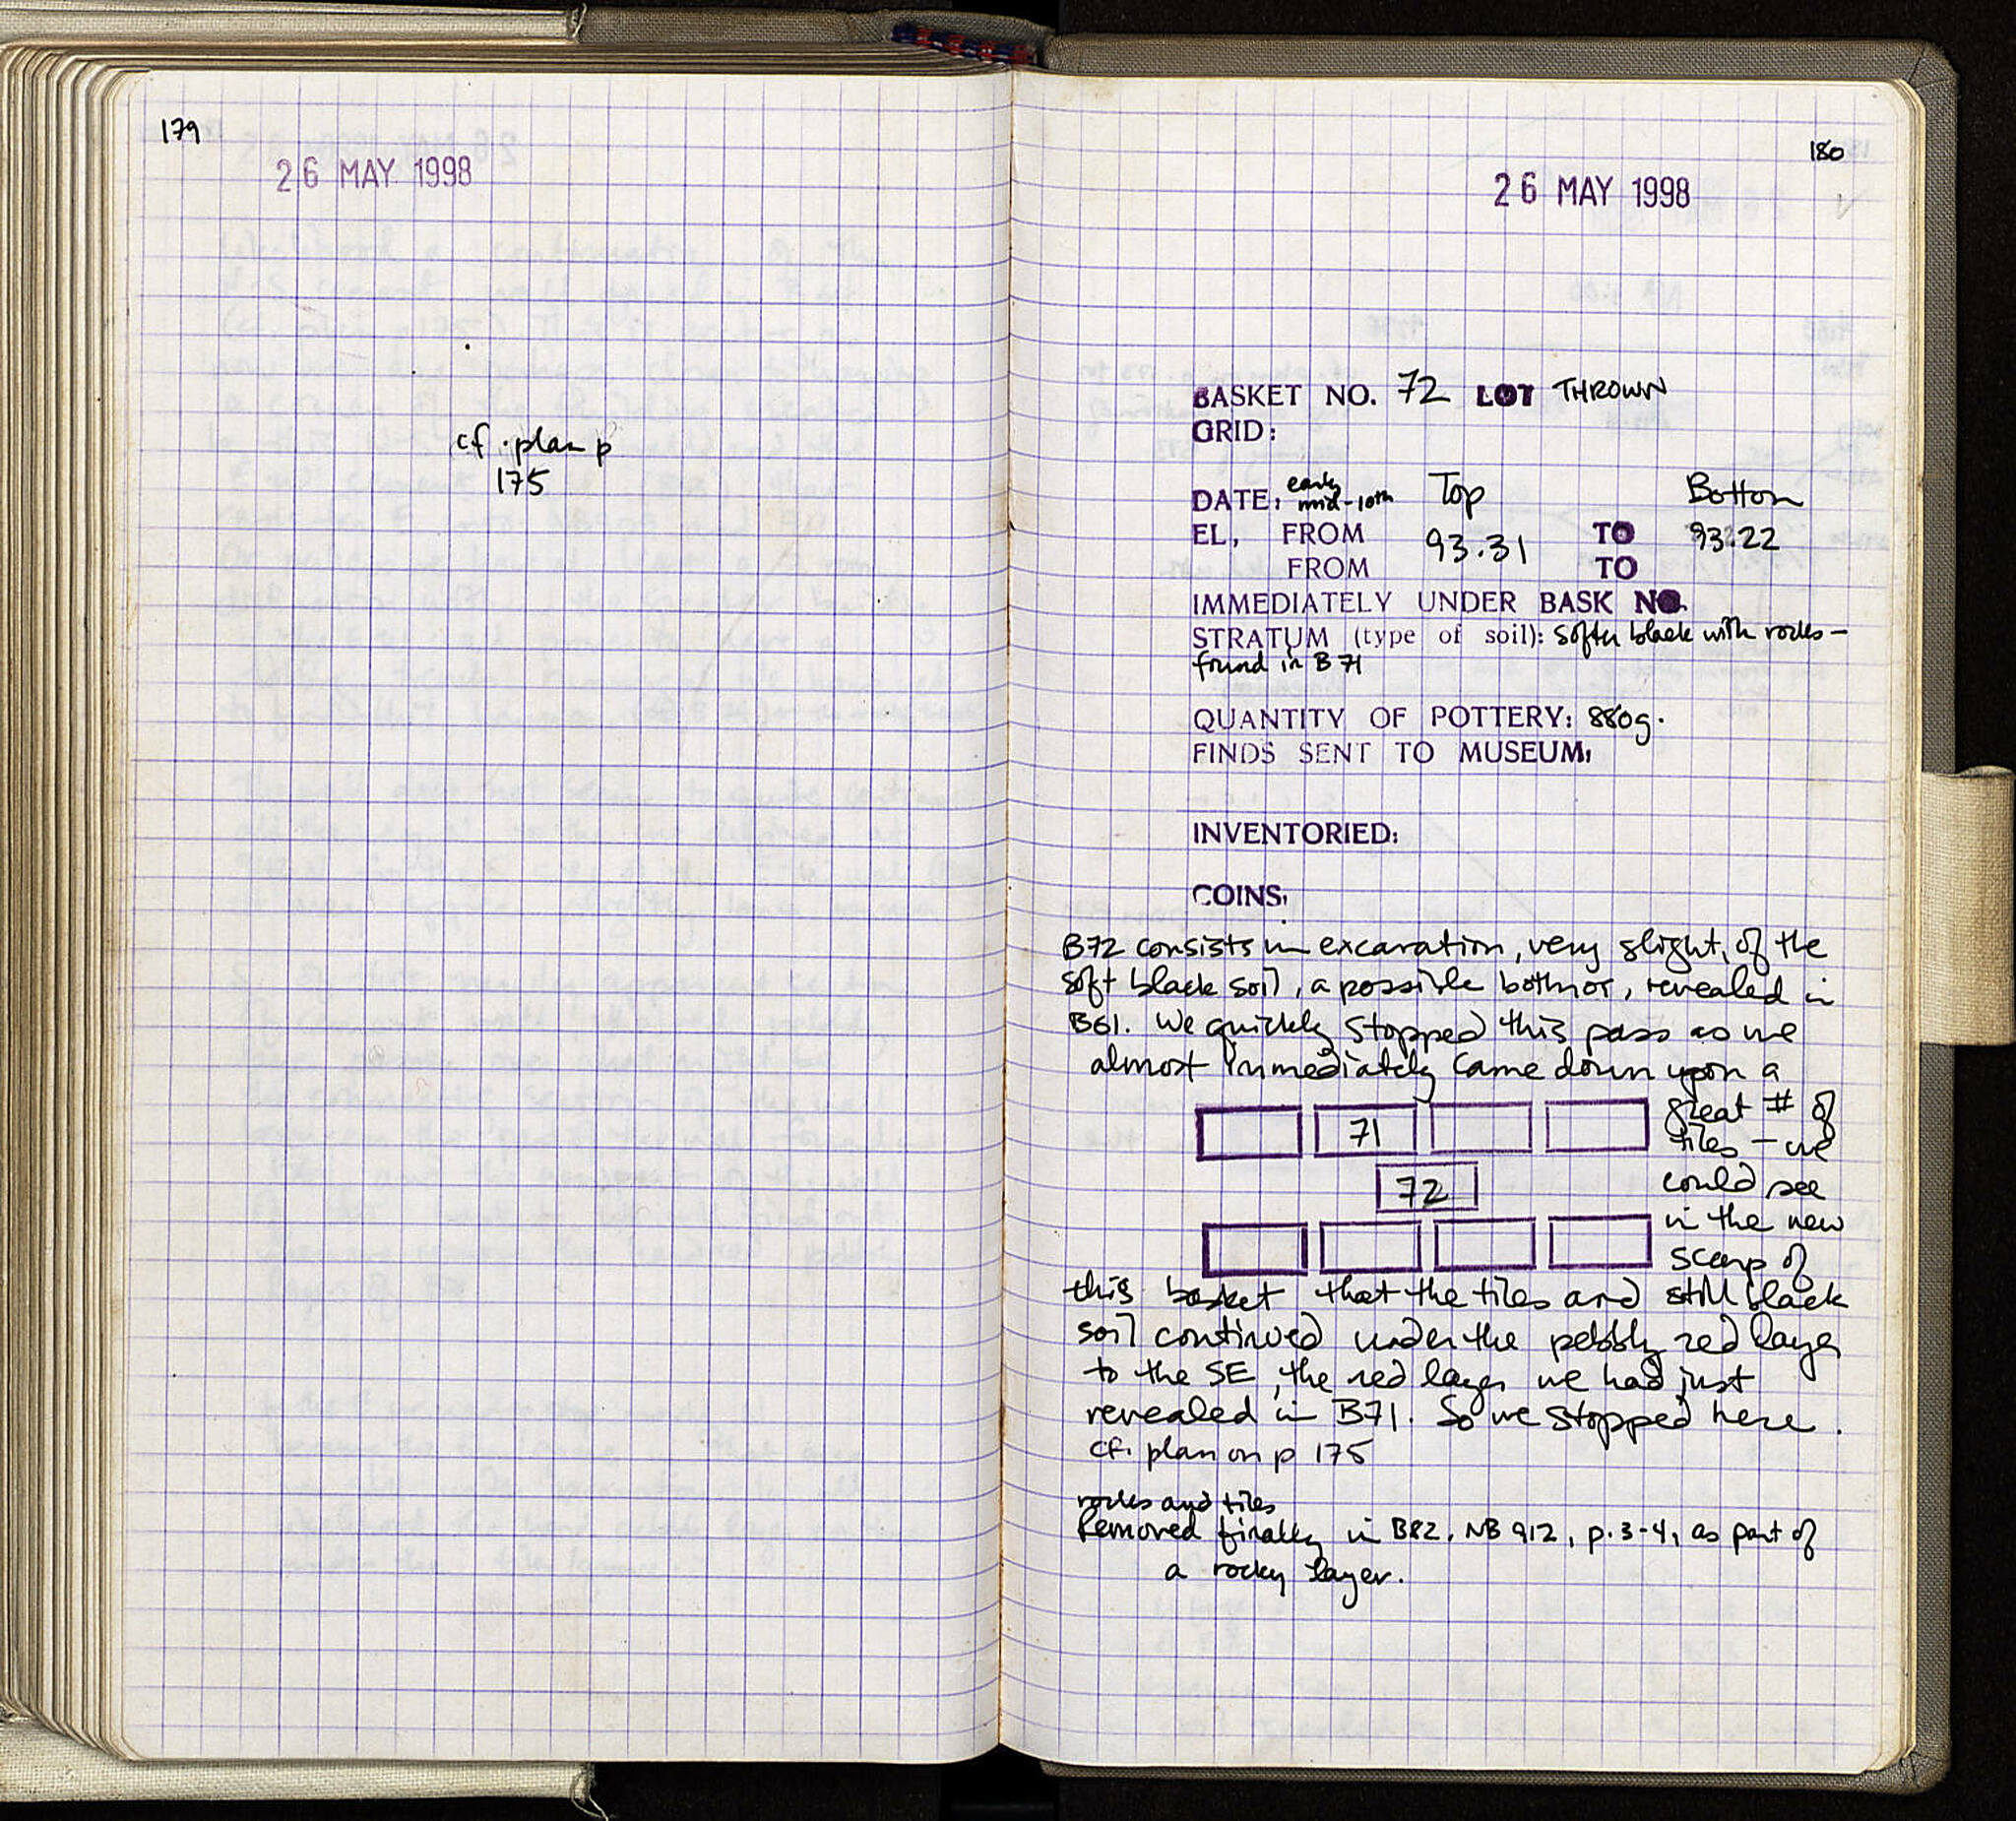 179
26 MAY 1998
cf. plan p
175
180
26 MAY 1998
BASKET NO. 72 LOT THROWN
GRID:
DATE: early mid-10th Top Bottom
EL, FROM 93.31 TO 93.22
FROM TO
IMMEDIATELY UNDER BASK NO.
STRATUM (type of soil): Softer black with rocks –
found in B71
QUANTITY OF POTTERY: 880g.
FINDS SENT TO MUSEUM:
INVENTORIED:
COINS:
B72 consists in excavation, very slight, of the
soft black soil, a possible bothros, revealed in
B61. We quickly stopped this pass as we
almost immediately came down upon a
great # of
71
tiles – we
72
could see
in the new
scarp of
this basket that the tiles and still black
soil continued under the pebbly red layer
to the SE, the red layer we had just
revealed in B71. So we stopped here.
cf. plan on p 175
rocks and tiles
Removed finally in B82, NB 912, p. 3-4, as part of
a rocky layer.